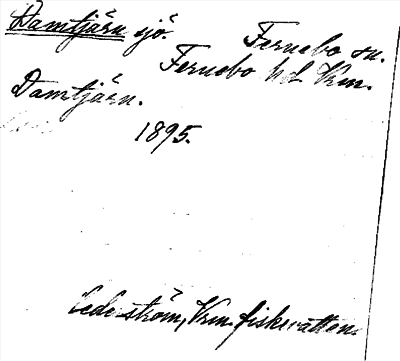 Damtjärn sjö.
Fernebo sn.
Fernebo hd Vrm.
Damtjärn.
1895.
Cederström, Vrm. fiskevatten.